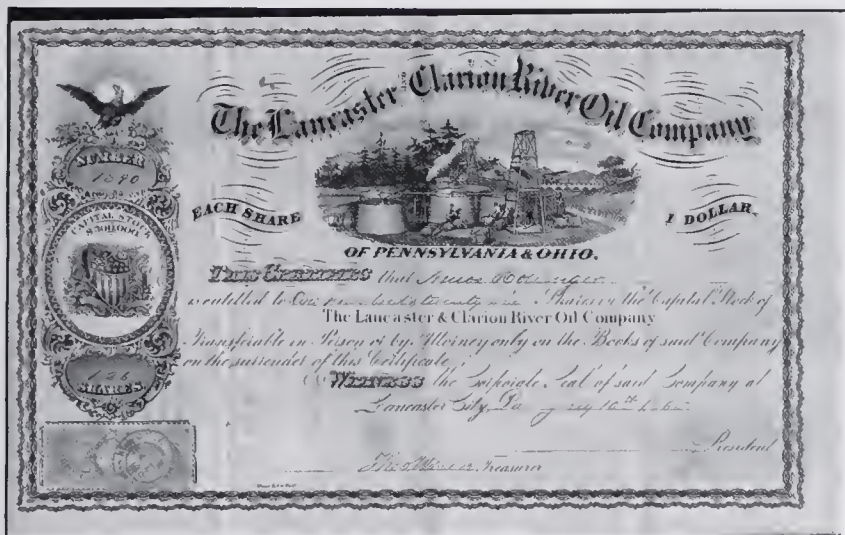 The Lancaster AND Clarion River Oil Company
NUMBER
1390
EACH SHARE
1 DOLLAR.
CAPITAL STOCK
$300,000
OF PENNSYLVANIA & OHIO.
THIS CERTIFIES that Amos
is entitled to One hundred & twenty Shares in the Capital Stock of
The Lancaster & Clarion River Oil Company
Transferable in Person or by Attorney only on the Books of said Company
on the surrender of this Certificate.
SHARES
WITNESS the Corporate Seal of said Company at
Lancaster City, Pa
President
Treasurer